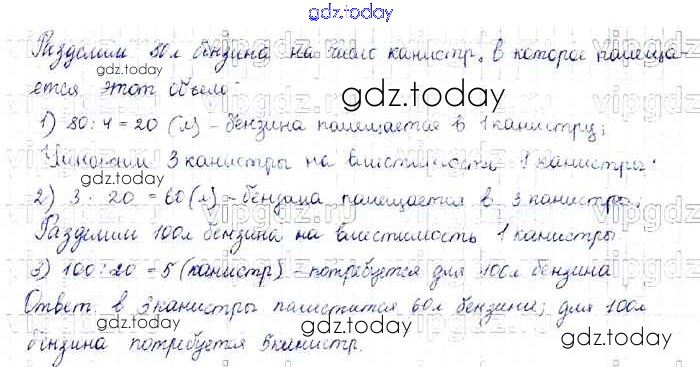 gdz.today
Разделим 80л бензина на число канистр, в которое помеща-
gdz.today
ется этот объем:
gdz.today
1) 80:4=20 (л) - бензина помещается в 1 канистру;
Умножим 3 канистры на вместимость 1 канистры:
gdz.today
2) 3 · 20 = 60 (л) - бензина помещается в 3 канистры;
Разделим 100л бензина на вместимость 1 канистры
gdz.today
3) 100:20=5 (канистр) - потребуется для 100л бензина
Ответ: в 3 канистры поместится 60л бензина; для 100л
gdz.today
gdz.today
бензина потребуется 5 канистр.